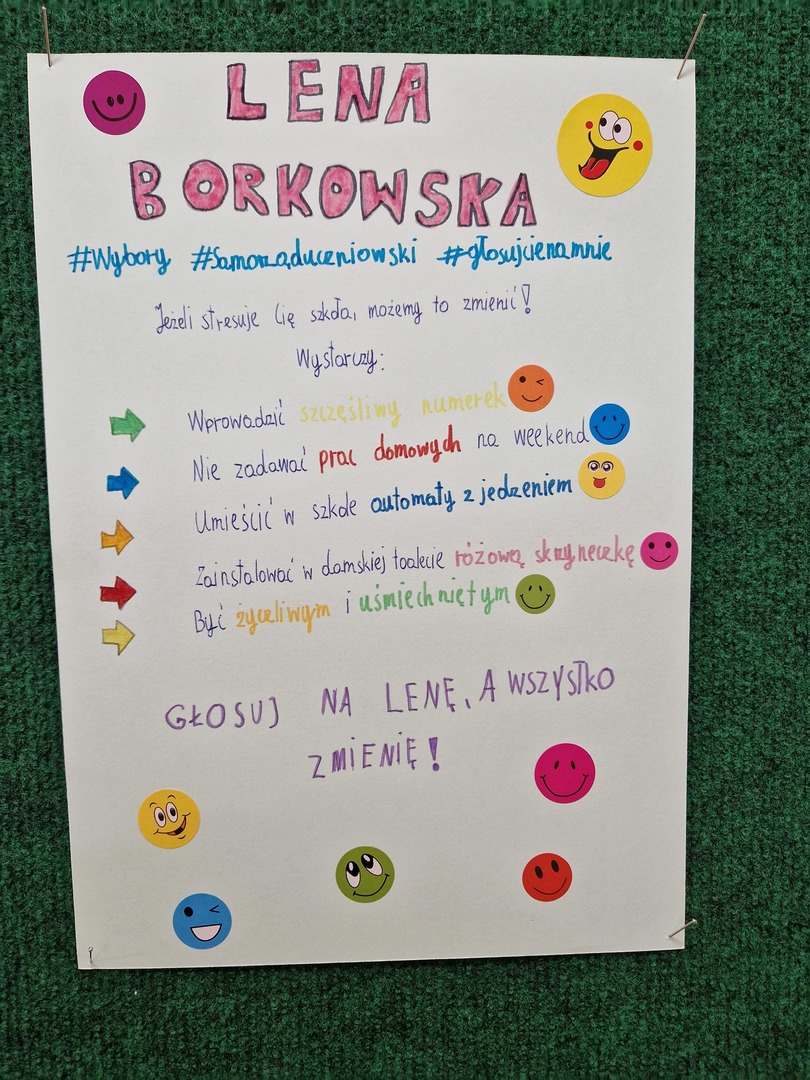 LENA
BORKOWSKA
#Wybory #Samorząduczniowski #głosujcienamnie
Jeżeli stresuje Cię szkoła, możemy to zmienić!
Wystarczy:
Wprowadzić szczęśliwy numerek
Nie zadawać prac domowych na weekend
Umieścić w szkole automaty z jedzeniem
Zainstalować w damskiej toalecie różową skrzyneczkę
Być życzliwym i uśmiechniętym
GŁOSUJ NA LENĘ, A WSZYSTKO
ZMIENIĘ!